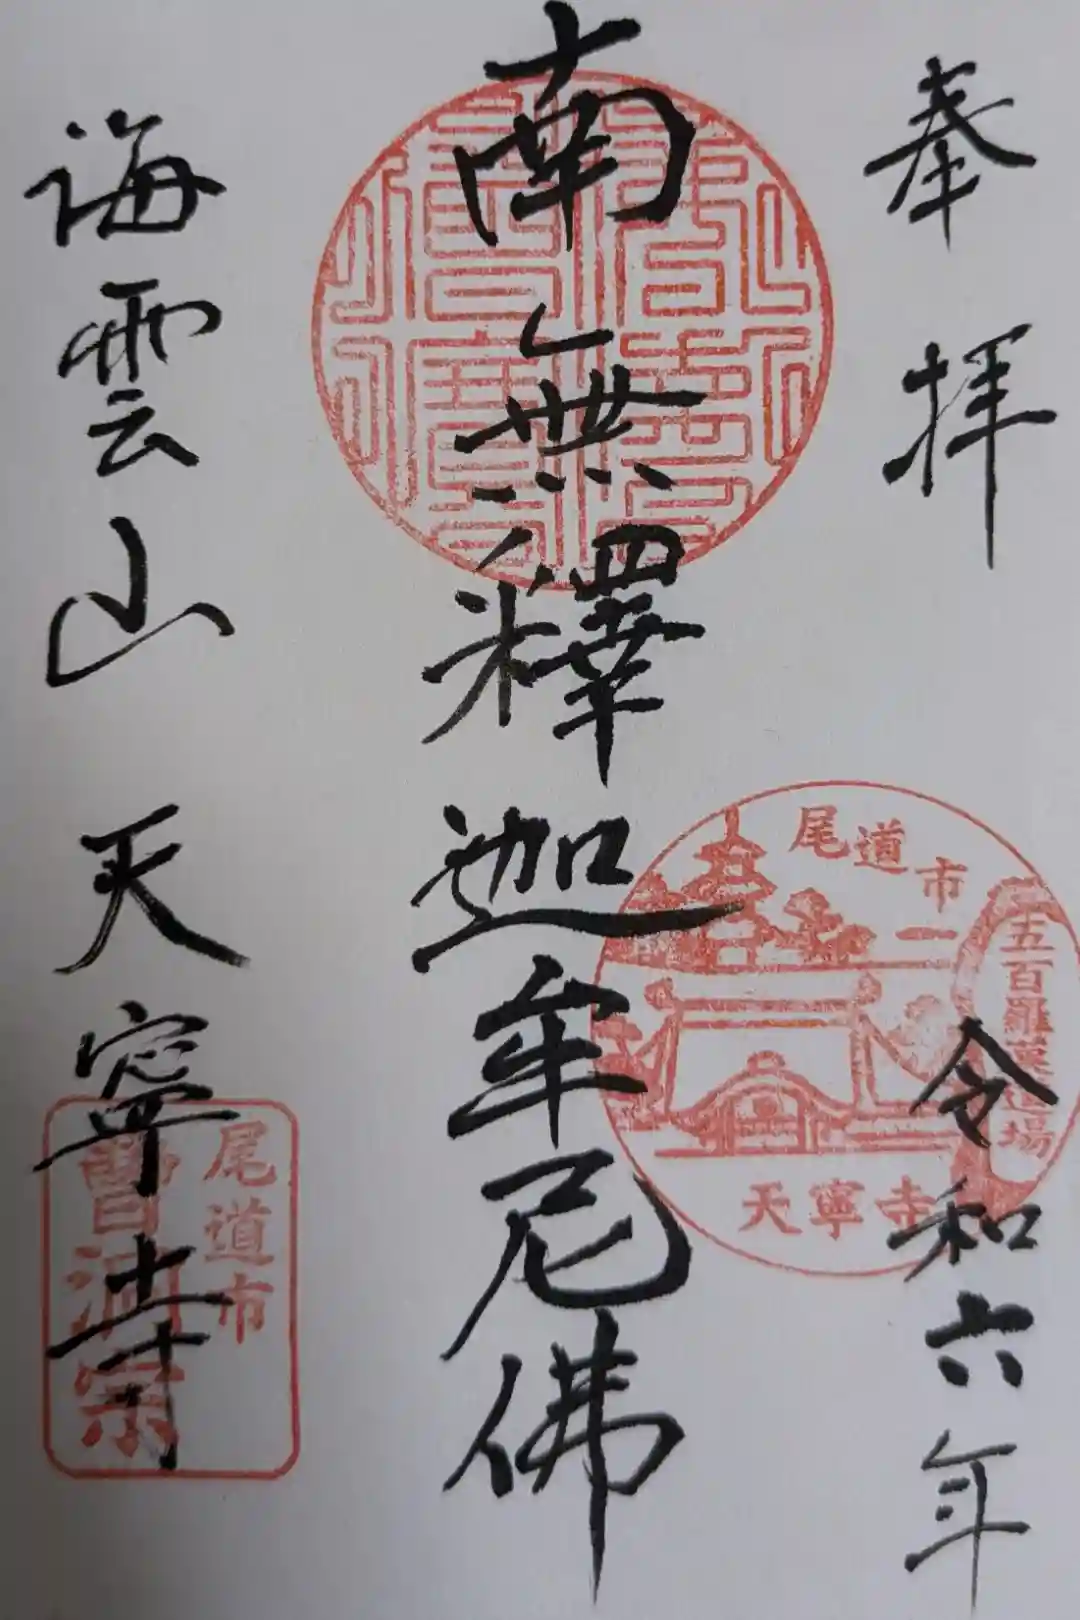 奉拝
令和六年
南無釋迦牟尼佛
海雲山天寧寺
尾道市
五百羅漢道場
天寧寺
尾道市
曹洞宗